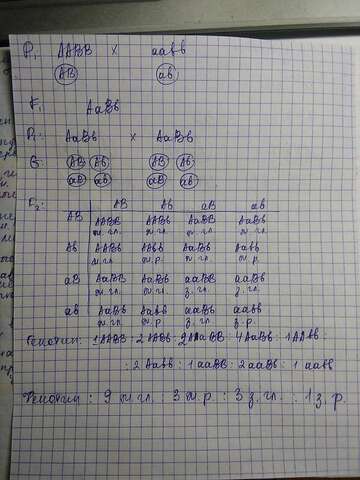 P₁ AABB × aabb
AB ab
F₁ AaBb
P₂: AaBb × AaBb
G: AB Ab AB Ab
aB ab aB ab
F₂: AB Ab aB ab
AB AABB AABb AaBB AaBb
ж.гл. ж.гл. ж.гл. ж.гл.
Ab AABb AAbb AaBb Aabb
ж.гл. ж.р. ж.гл. ж.р.
aB AaBB AaBb aaBB aaBb
ж.гл. ж.гл. з.гл. з.гл.
ab AaBb Aabb aaBb aabb
ж.гл. ж.р. з.гл. з.р.
Генотип: 1AABB : 2AABb : 2AaBB : 4AaBb : 1AAbb :
: 2Aabb : 1aaBB : 2aaBb : 1aabb
Фенотип : 9 ж.гл. : 3 ж.р. : 3 з.гл. : 1 з.р.